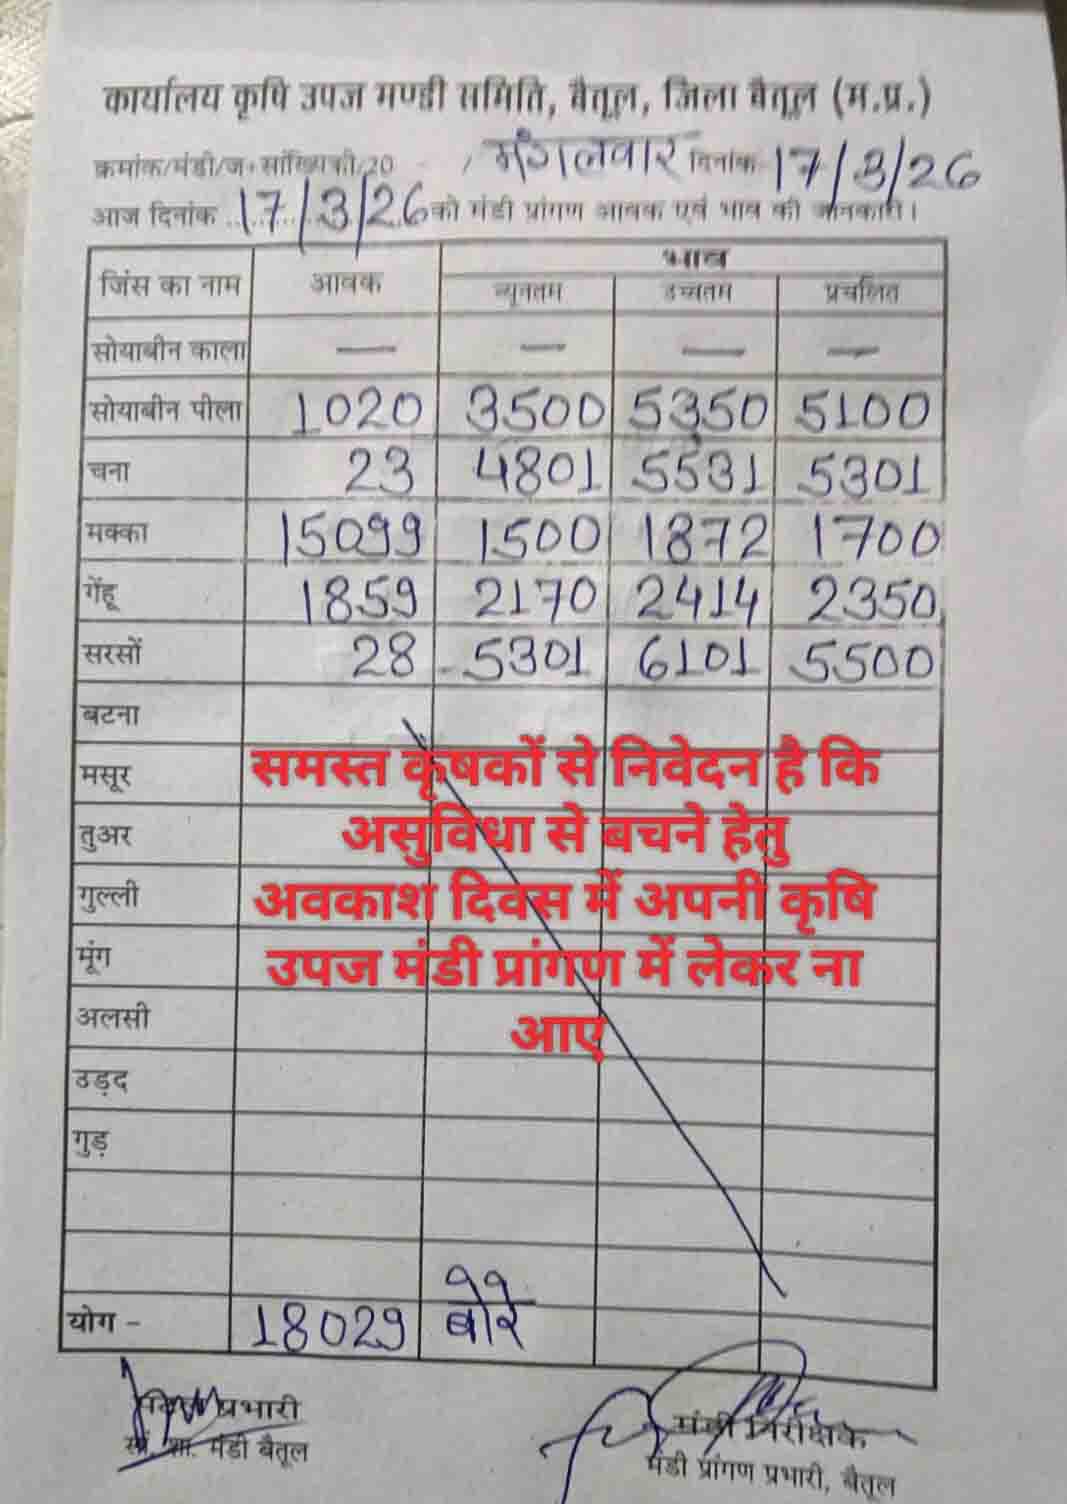 कार्यालय कृषि उपज मण्डी समिति, बैतूल, जिला बैतूल (म.प्र.)
क्रमांक/मंडी/ज.सांख्यिकी/20 - / मंगलवार दिनांक 17/3/26
आज दिनांक 17/3/26 को मंडी प्रांगण आवक एवं भाव की जानकारी।
जिंस का नाम आवक भाव
न्यूनतम उच्चतम प्रचलित
सोयाबीन काला — — — —
सोयाबीन पीला 1020 3500 5350 5100
चना 23 4801 5531 5301
मक्का 15099 1500 1872 1700
गेंहू 1859 2170 2414 2350
सरसों 28 5301 6101 5500
बटना
मसूर
तुअर
गुल्ली
मूंग
अलसी
उड़द
गुड़
समस्त कृषकों से निवेदन है कि
असुविधा से बचने हेतु
अवकाश दिवस में अपनी कृषि
उपज मंडी प्रांगण में लेकर ना
आए
योग - 18029 बोरे
प्रभारी
मंडी बैतूल
मंडी निरीक्षक
मंडी प्रांगण प्रभारी, बैतूल